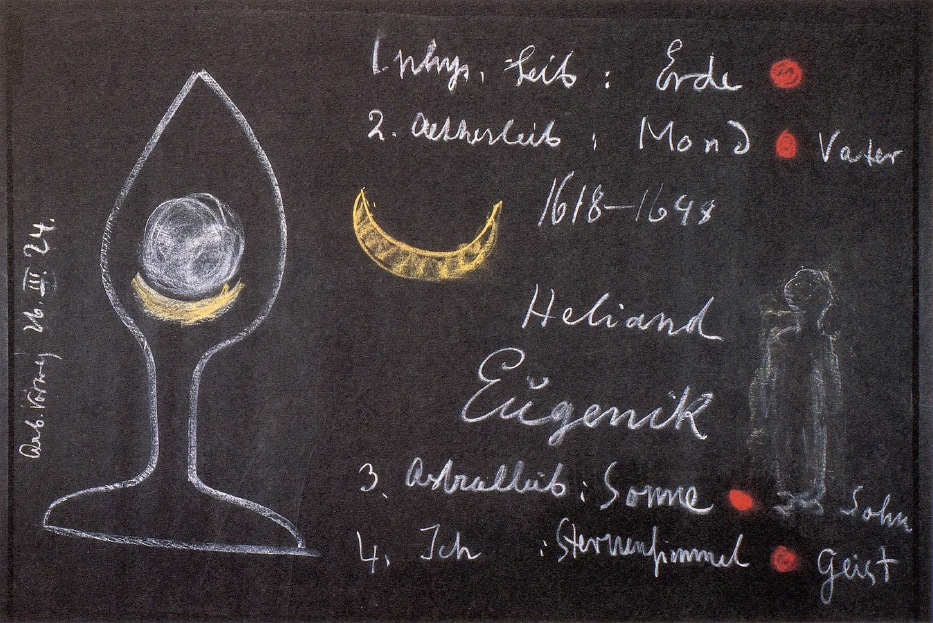 1. phys. Leib : Erde
2. Aetherleib : Mond Vater
1618–1648
Heliand
Eugenik
3. Astralleib : Sonne Sohn
4. Ich : Sternenhimmel Geist
26. III. 24.